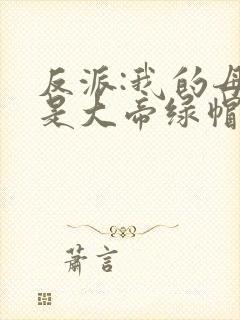 反派:我的母
是大帝绿帽
萧言